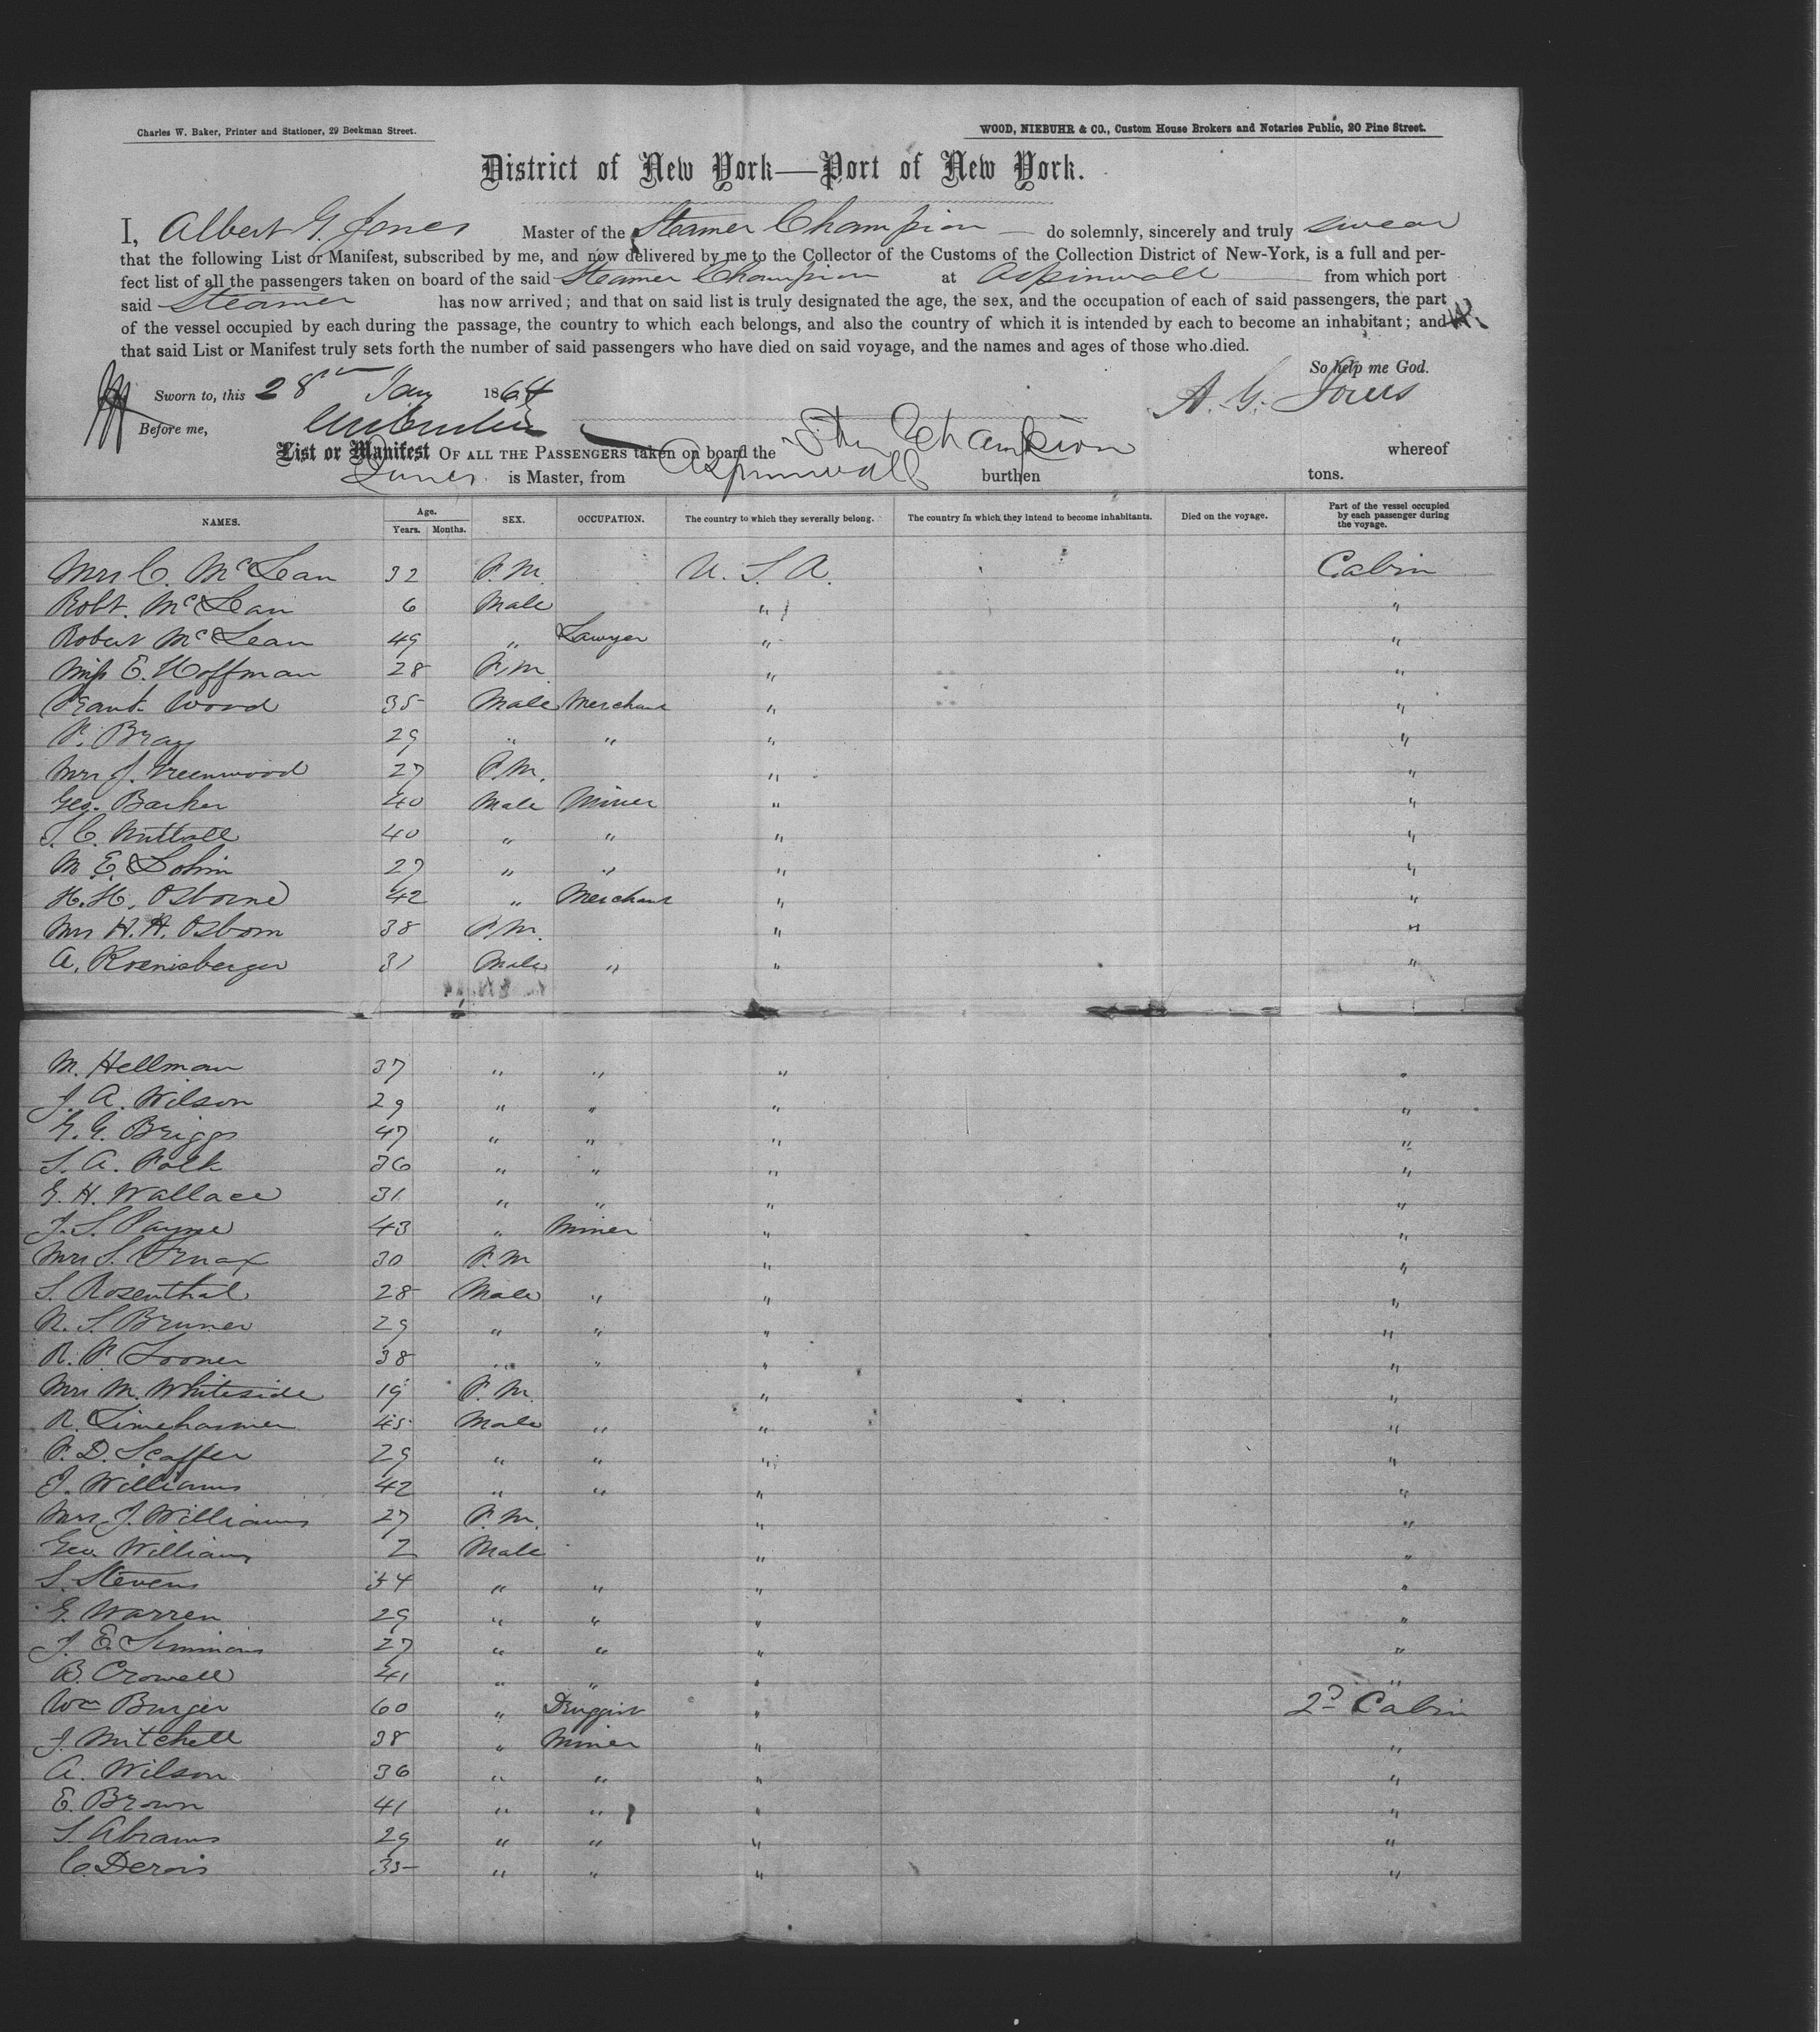 Charles W. Baker, Printer and Stationer, 29 Beekman Street.
WOOD, NIEBUHR & CO., Custom House Brokers and Notaries Public, 20 Pine Street.
District of New York—Port of New York.
I, Albert G. Jones Master of the Steamer Champion do solemnly, sincerely and truly swear
that the following List or Manifest, subscribed by me, and now delivered by me to the Collector of the Customs of the Collection District of New-York, is a full and per-
fect list of all the passengers taken on board of the said Steamer Champion at Aspinwall from which port
said Steamer has now arrived; and that on said list is truly designated the age, the sex, and the occupation of each of said passengers, the part
of the vessel occupied by each during the passage, the country to which each belongs, and also the country of which it is intended by each to become an inhabitant; and
that said List or Manifest truly sets forth the number of said passengers who have died on said voyage, and the names and ages of those who died.
So help me God.
Sworn to, this 28th Jany 1864 A. G. Jones
Before me,
List or Manifest OF ALL THE PASSENGERS taken on board the Str Champion whereof
Jones is Master, from Aspinwall burthen tons.
NAMES. Age. Years. Months. SEX. OCCUPATION. The country to which they severally belong. The country in which they intend to become inhabitants. Died on the voyage. Part of the vessel occupied by each passenger during the voyage.
Mrs C. McLean 32 F.M. U.S.A. Cabin
Robt. McLean 6 Male " "
Robert McLean 49 " Lawyer " "
Miss E. Hoffman 28 F.M. " "
Frank Wood 35 Male Merchant " "
F. Bray 29 " " " "
Mrs J. Greenwood 27 F.M. " "
Geo. Barker 40 Male Miner " "
J. C. Nuttall 40 " " " "
M. E. 27 " " " "
H. H. Osborne 42 " Merchant " "
Mrs H. H. Osborn 38 F.M. " "
A. Koenisberger 31 Male " " "
M. Hellman 37 " " " "
J. A. Wilson 29 " " " "
G. G. Briggs 47 " " " "
S. A. Falk 36 " " " "
G. H. Wallace 31 " " " "
J. S. Payne 43 " Miner " "
Mrs S. 30 F.M " "
S. Rosenthal 28 Male " " "
N. S. Bruner 29 " " " "
R. F. 38 " " " "
Mrs M. Whiteside 19 F.M. " "
R. 45 Male " " "
F. D. Scaffer 29 " " " "
J. Williams 42 " " " "
Mrs J. Williams 27 F.M. " "
Geo Williams 2 Male " "
S. Stevens 34 " " " "
G. Warren 29 " " " "
J. E. Simmons 27 " " " "
B. Crowell 41 " " " "
Wm Burger 60 " Druggist " 2d Cabin
J. Mitchell 38 " Miner " "
A. Wilson 36 " " " "
E. Brown 41 " " " "
S. Abrams 29 " " " "
C. Derois 35 " " " "